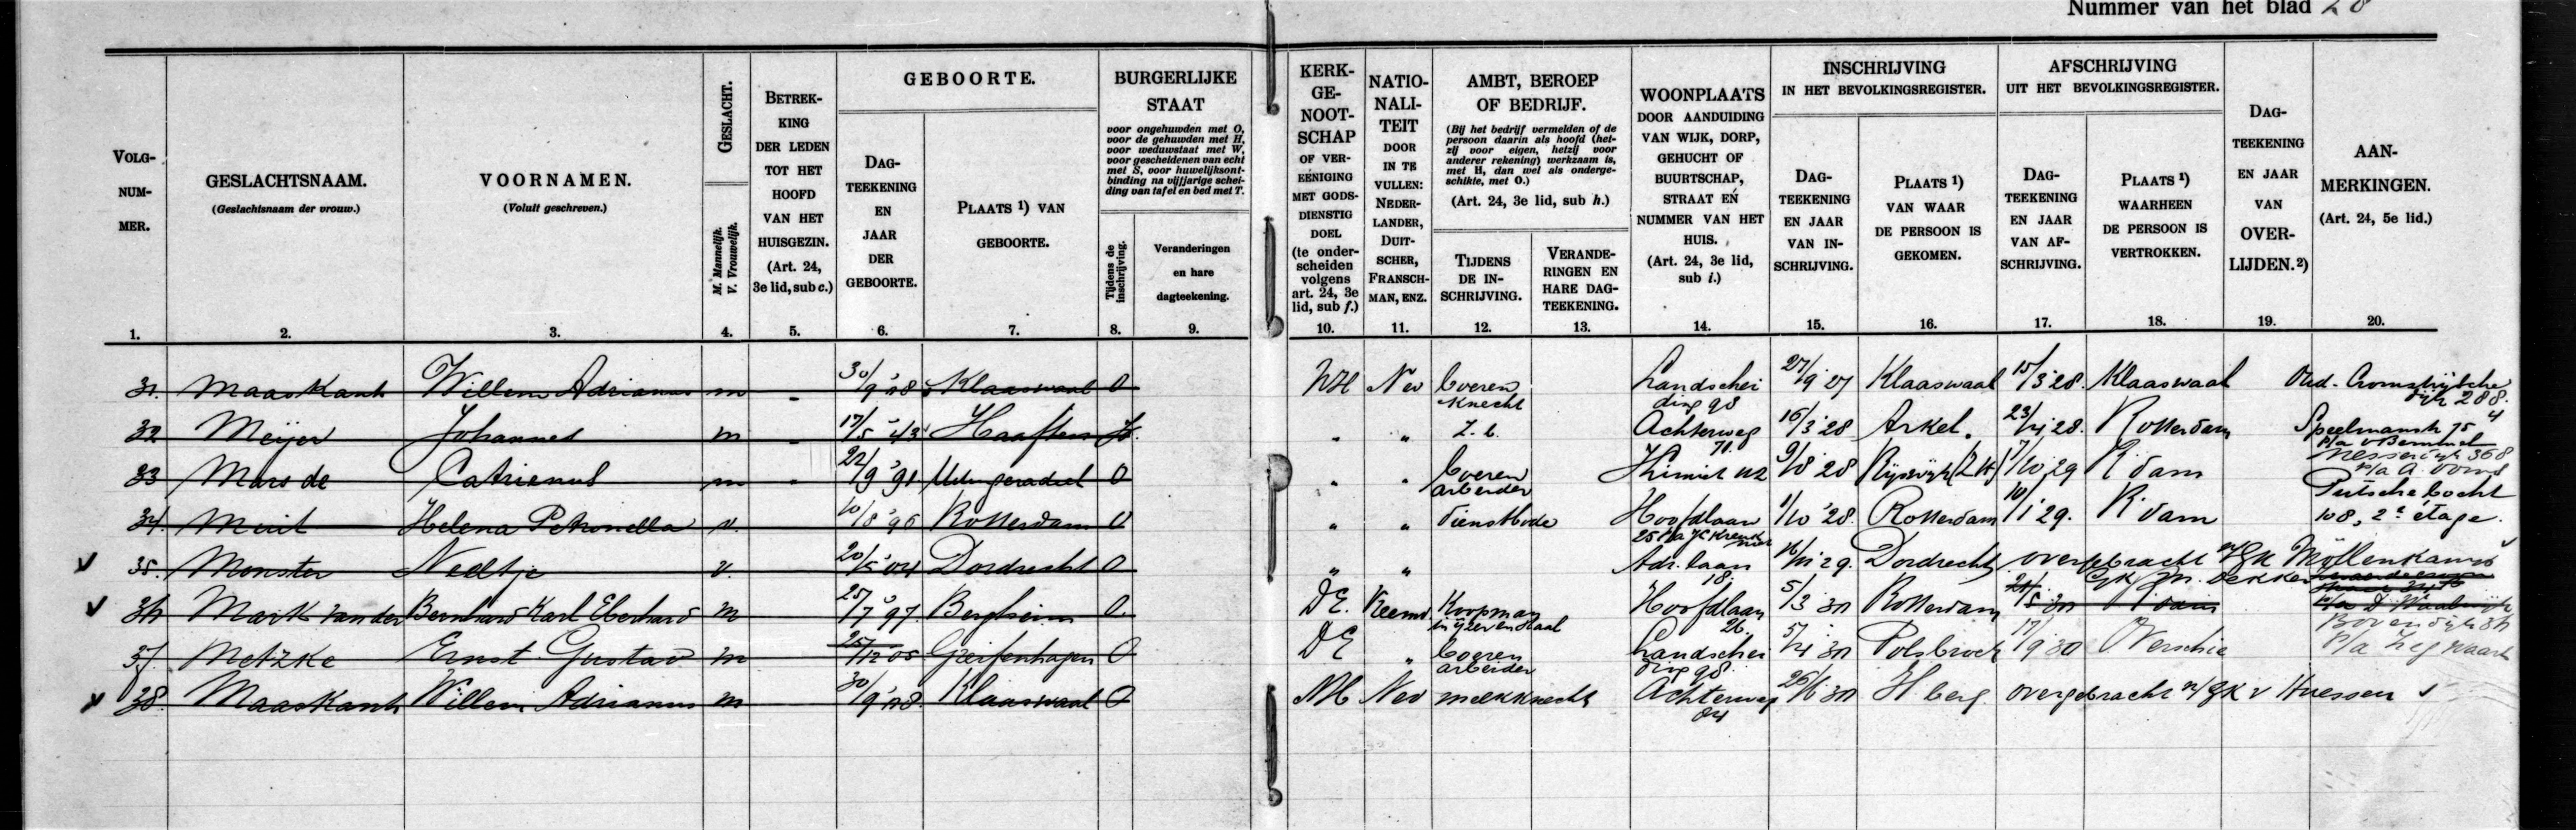 Nummer van het blad 28
VOLG-NUM-MER.
GESLACHTSNAAM.
(Geslachtsnaam der vrouw.)
VOORNAMEN.
(Voluit geschreven.)
GESLACHT.
M. Mannelijk.
V. Vrouwelijk.
BETREK-KING DER LEDEN TOT HET HOOFD VAN HET HUISGEZIN.
(Art. 24, 3e lid, sub c.)
GEBOORTE.
DAG-TEEKENING EN JAAR DER GEBOORTE.
PLAATS 1) VAN GEBOORTE.
BURGERLIJKE STAAT
voor ongehuwden met O,
voor de gehuwden met H,
voor weduwstaat met W,
voor gescheidenen van echt
met S, voor huwelijksont-
binding na vijfjarige schei-
ding van tafel en bed met T.
Tijdens de inschrijving.
Veranderingen en hare dagteekening.
KERK-GE-NOOT-SCHAP
OF VER-EENIGING MET GODS-DIENSTIG DOEL
(te onder-scheiden volgens art. 24, 3e lid, sub f.)
NATIO-NALI-TEIT
DOOR IN TE VULLEN: NEDER-LANDER, DUIT-SCHER, FRANSCH-MAN, ENZ.
AMBT, BEROEP OF BEDRIJF.
(Bij het bedrijf vermelden of de
persoon daarin als hoofd (het-
zij voor eigen, hetzij voor
anderer rekening) werkzaam is,
met H, dan wel als onderge-
schikte, met O.)
(Art. 24, 3e lid, sub h.)
TIJDENS DE IN-SCHRIJVING.
VERANDE-RINGEN EN HARE DAG-TEEKENING.
WOONPLAATS
DOOR AANDUIDING VAN WIJK, DORP, GEHUCHT OF BUURTSCHAP, STRAAT EN NUMMER VAN HET HUIS.
(Art. 24, 3e lid, sub i.)
INSCHRIJVING
IN HET BEVOLKINGSREGISTER.
DAG-TEEKENING EN JAAR VAN IN-SCHRIJVING.
PLAATS 1) VAN WAAR DE PERSOON IS GEKOMEN.
AFSCHRIJVING
UIT HET BEVOLKINGSREGISTER.
DAG-TEEKENING EN JAAR VAN AF-SCHRIJVING.
PLAATS 1) WAARHEEN DE PERSOON IS VERTROKKEN.
DAG-TEEKENING EN JAAR VAN OVER-LIJDEN. 2)
AAN-MERKINGEN.
(Art. 24, 5e lid.)
1. 2. 3. 4. 5. 6. 7. 8. 9. 10. 11. 12. 13. 14. 15. 16. 17. 18. 19. 20.
31. Maaskant Willem Adrianus m - 30/9 '08 Klaaswaal O NH Ned boeren knecht Landschei ding 98 27/9 27 Klaaswaal 15/3 28. Klaaswaal Oud-Cromstrijensche dijk 288.
32 Meijer Johannes m - 17/5 '43 Haaften " " Z.b. Achterweg 71. 16/3 28 Arkel. 23/4 28. Rotterdam Speelmanstr 75
33 Mars de Catrienus m - 22/9 '91 O " " boeren arbeider 9/8 28 Rijswijk 7/10 29 R'dam
34. Helena Petronella v. 10/8 '96 Rotterdam O " " dienstbode Hoofdlaan 1/10 '28. Rotterdam 10/1 29. R'dam Putsche bocht 108, 2e étage.
v 35. Monster Neeltje v. 20/5 '04 Dordrecht O " " Adr. laan 18. Dordrecht overgebracht n/GK Möllenkamp
v 36 Mark van der Bernhard Karl Eberhard m 25/7 '97 Bergheim O. DE. Vreemd. Koopman in ijzer en staal Hoofdlaan 26. 5/3 30 Rotterdam R'dam
37. Metzke Ernst Gustav m 25/12 05 Greifenhagen O DE " boeren arbeider Landschei ding 98. 5/4 30 Polsbroek 17/9 30 Overschie Bovendijk
v 38. Maaskant Willem Adrianus m 30/9 '08. Klaaswaal O NH Ned melkknecht Achterweg 84 26/6 30 H berg overgebracht n/GK v Huessen v